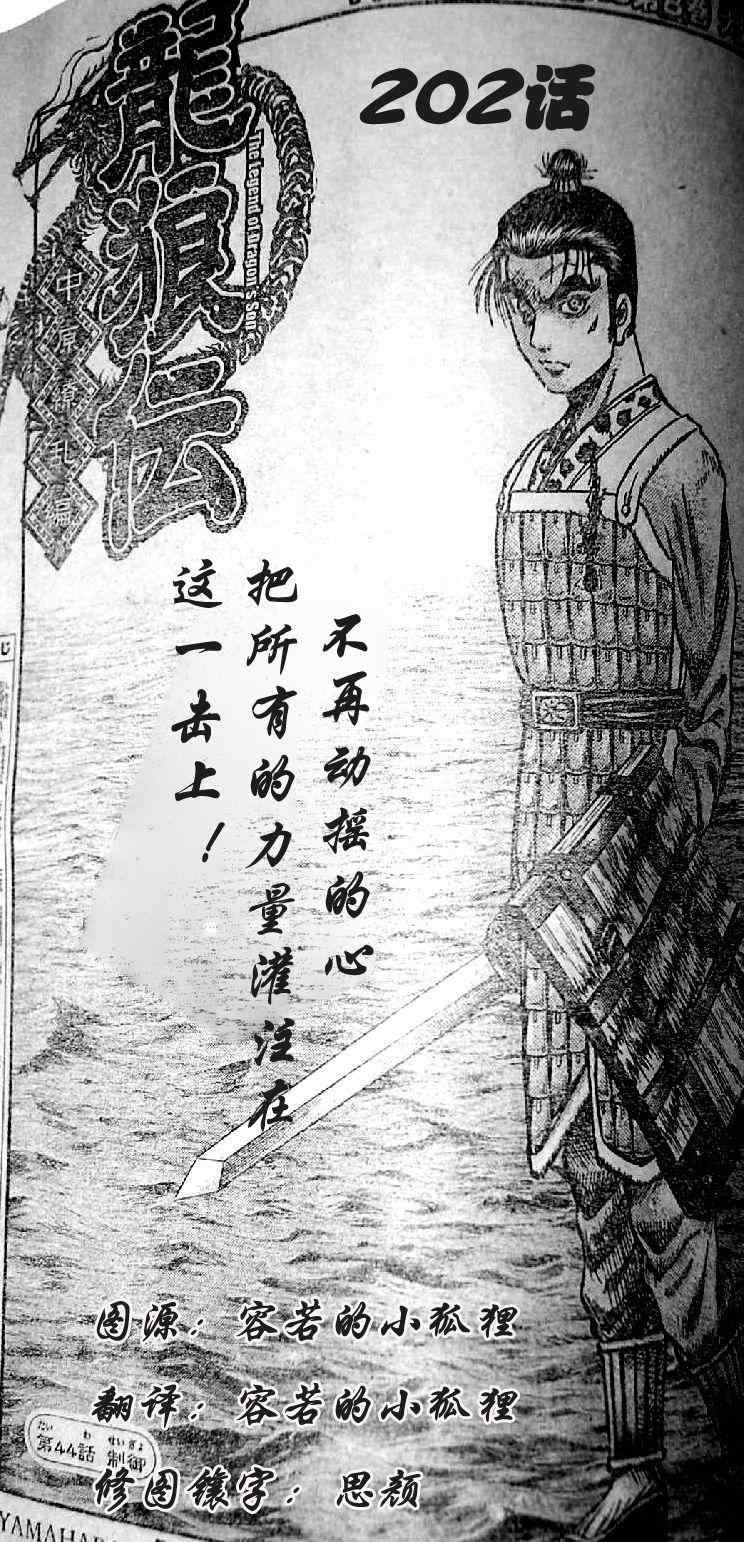 202话
龍狼伝
The Legend of Dragon's Son
中原繚乱編
不再动摇的心
把所有的力量灌注在
这一击上！
图源：容若的小狐狸
翻译：容若的小狐狸
第44話 制御
だい わ せいぎょ
修图镶字：思颜
YAMAHARA